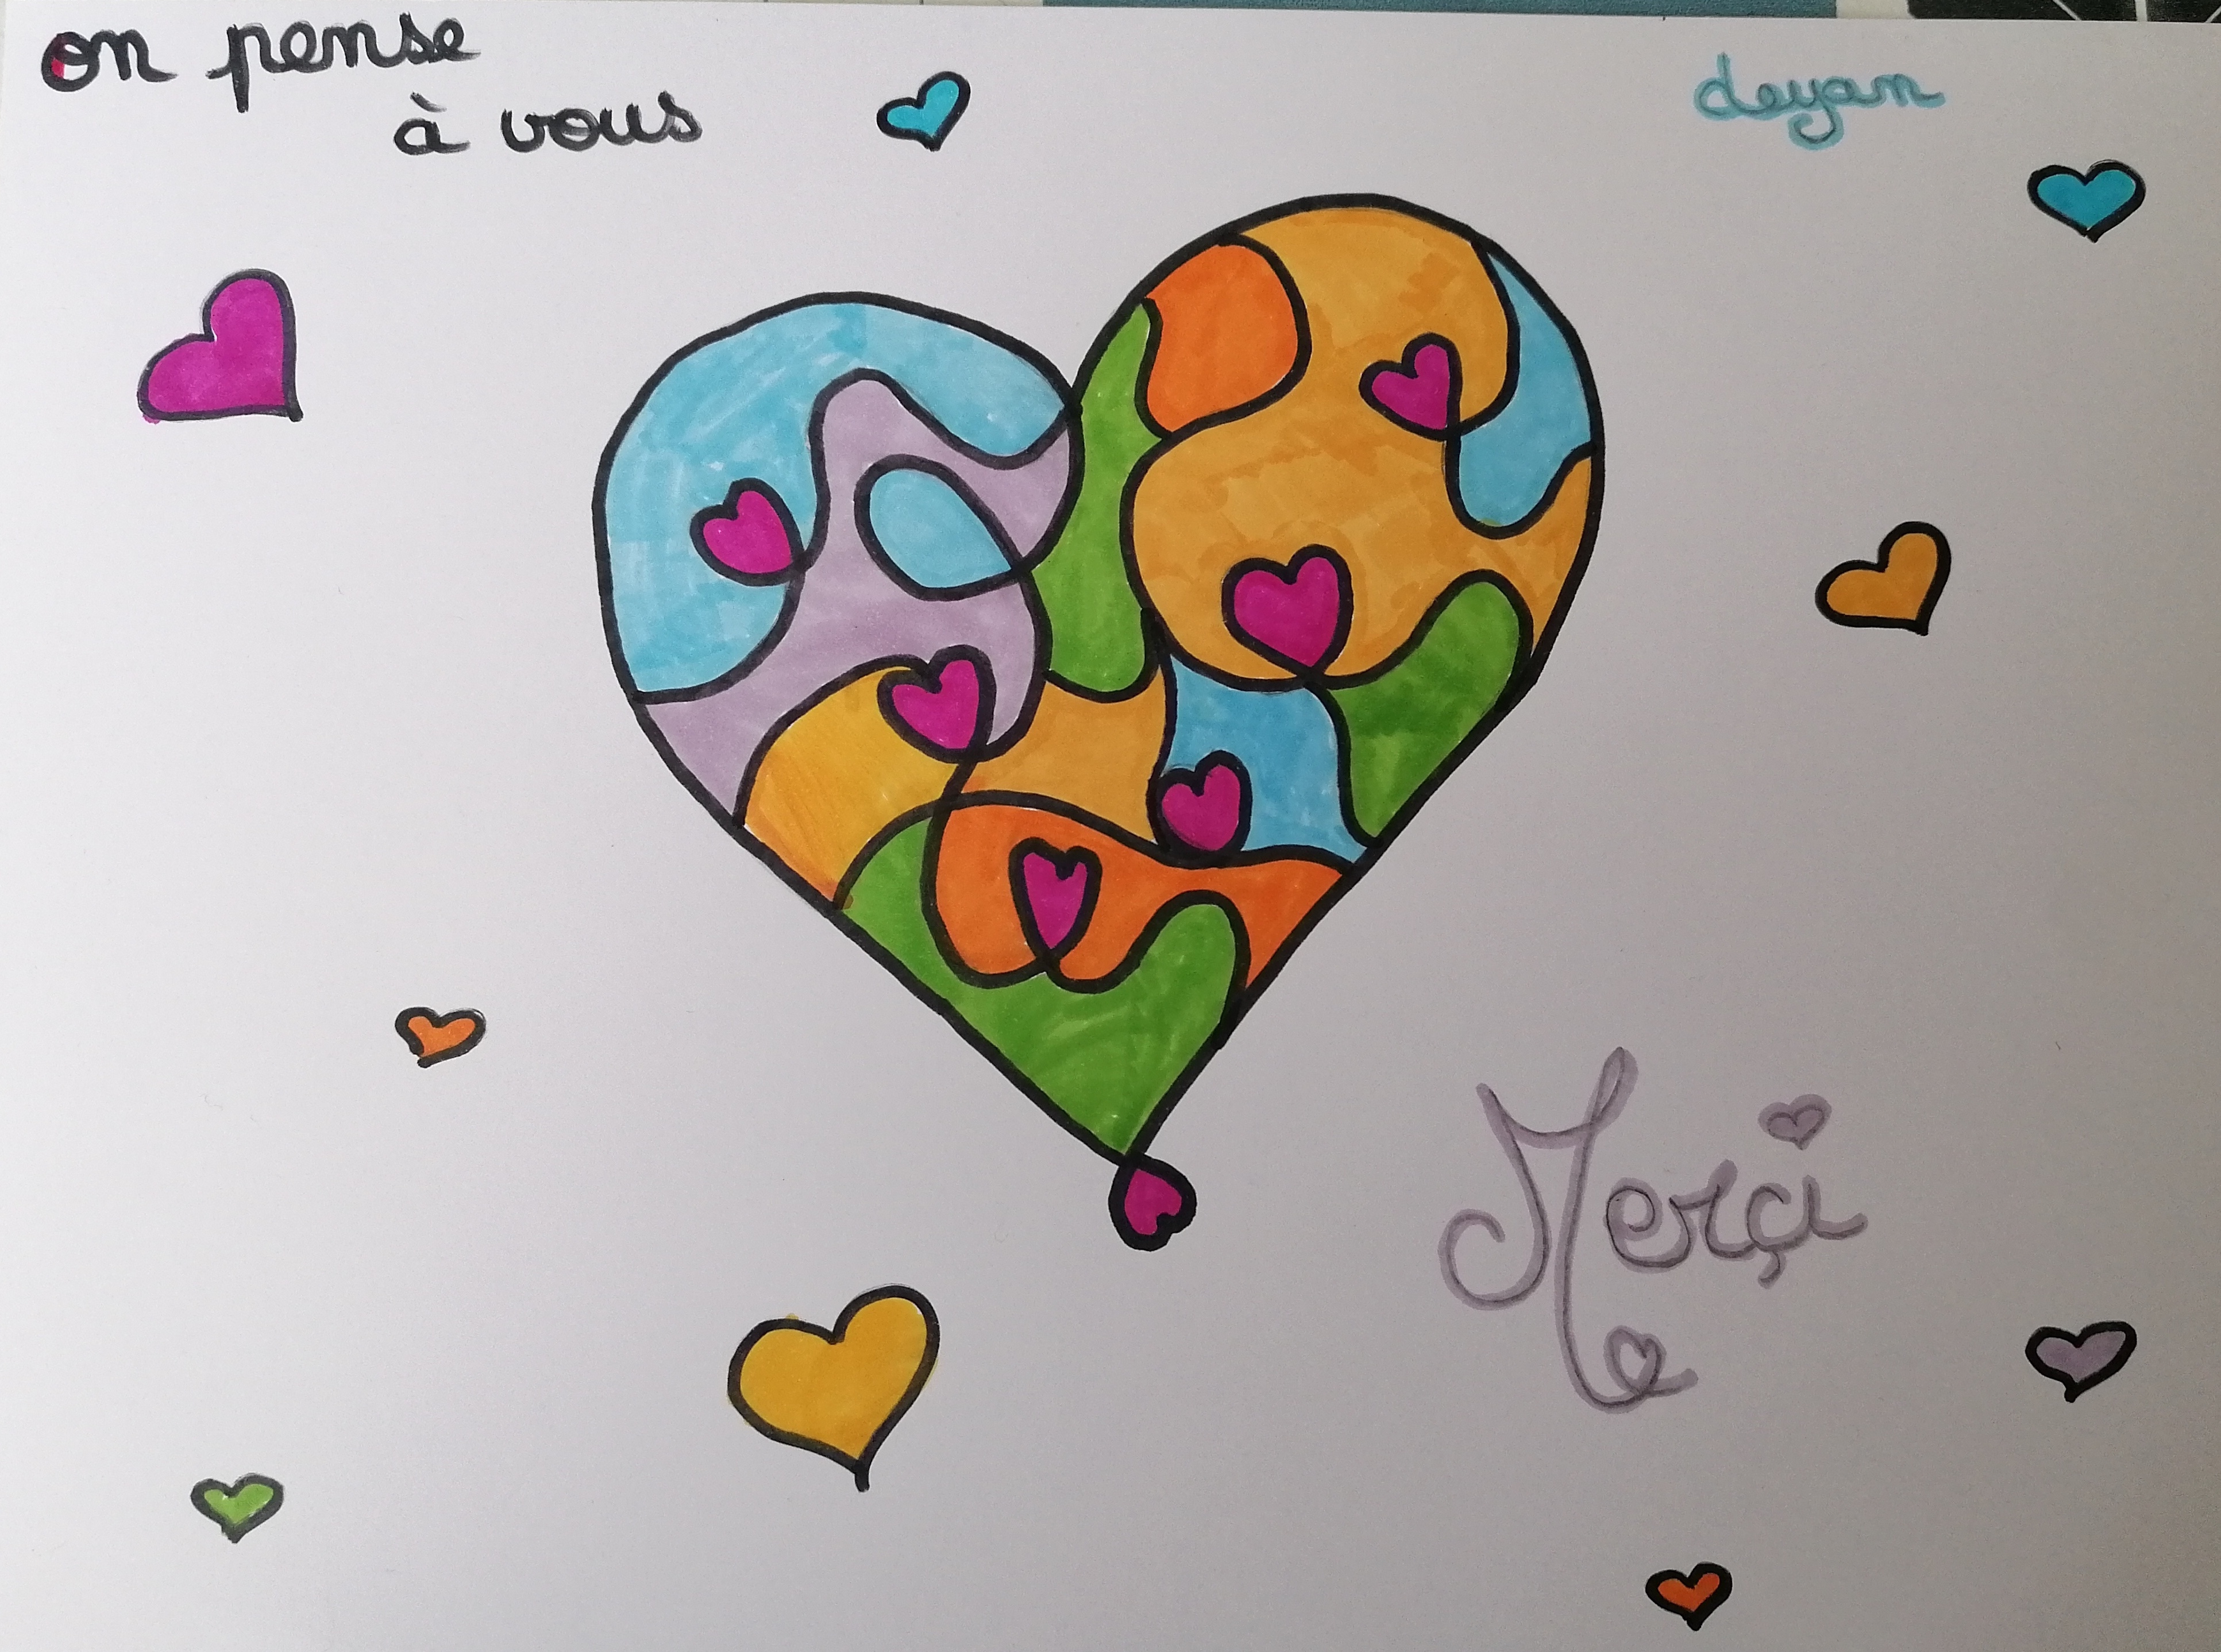 on pense
à vous
deyan
Merçi